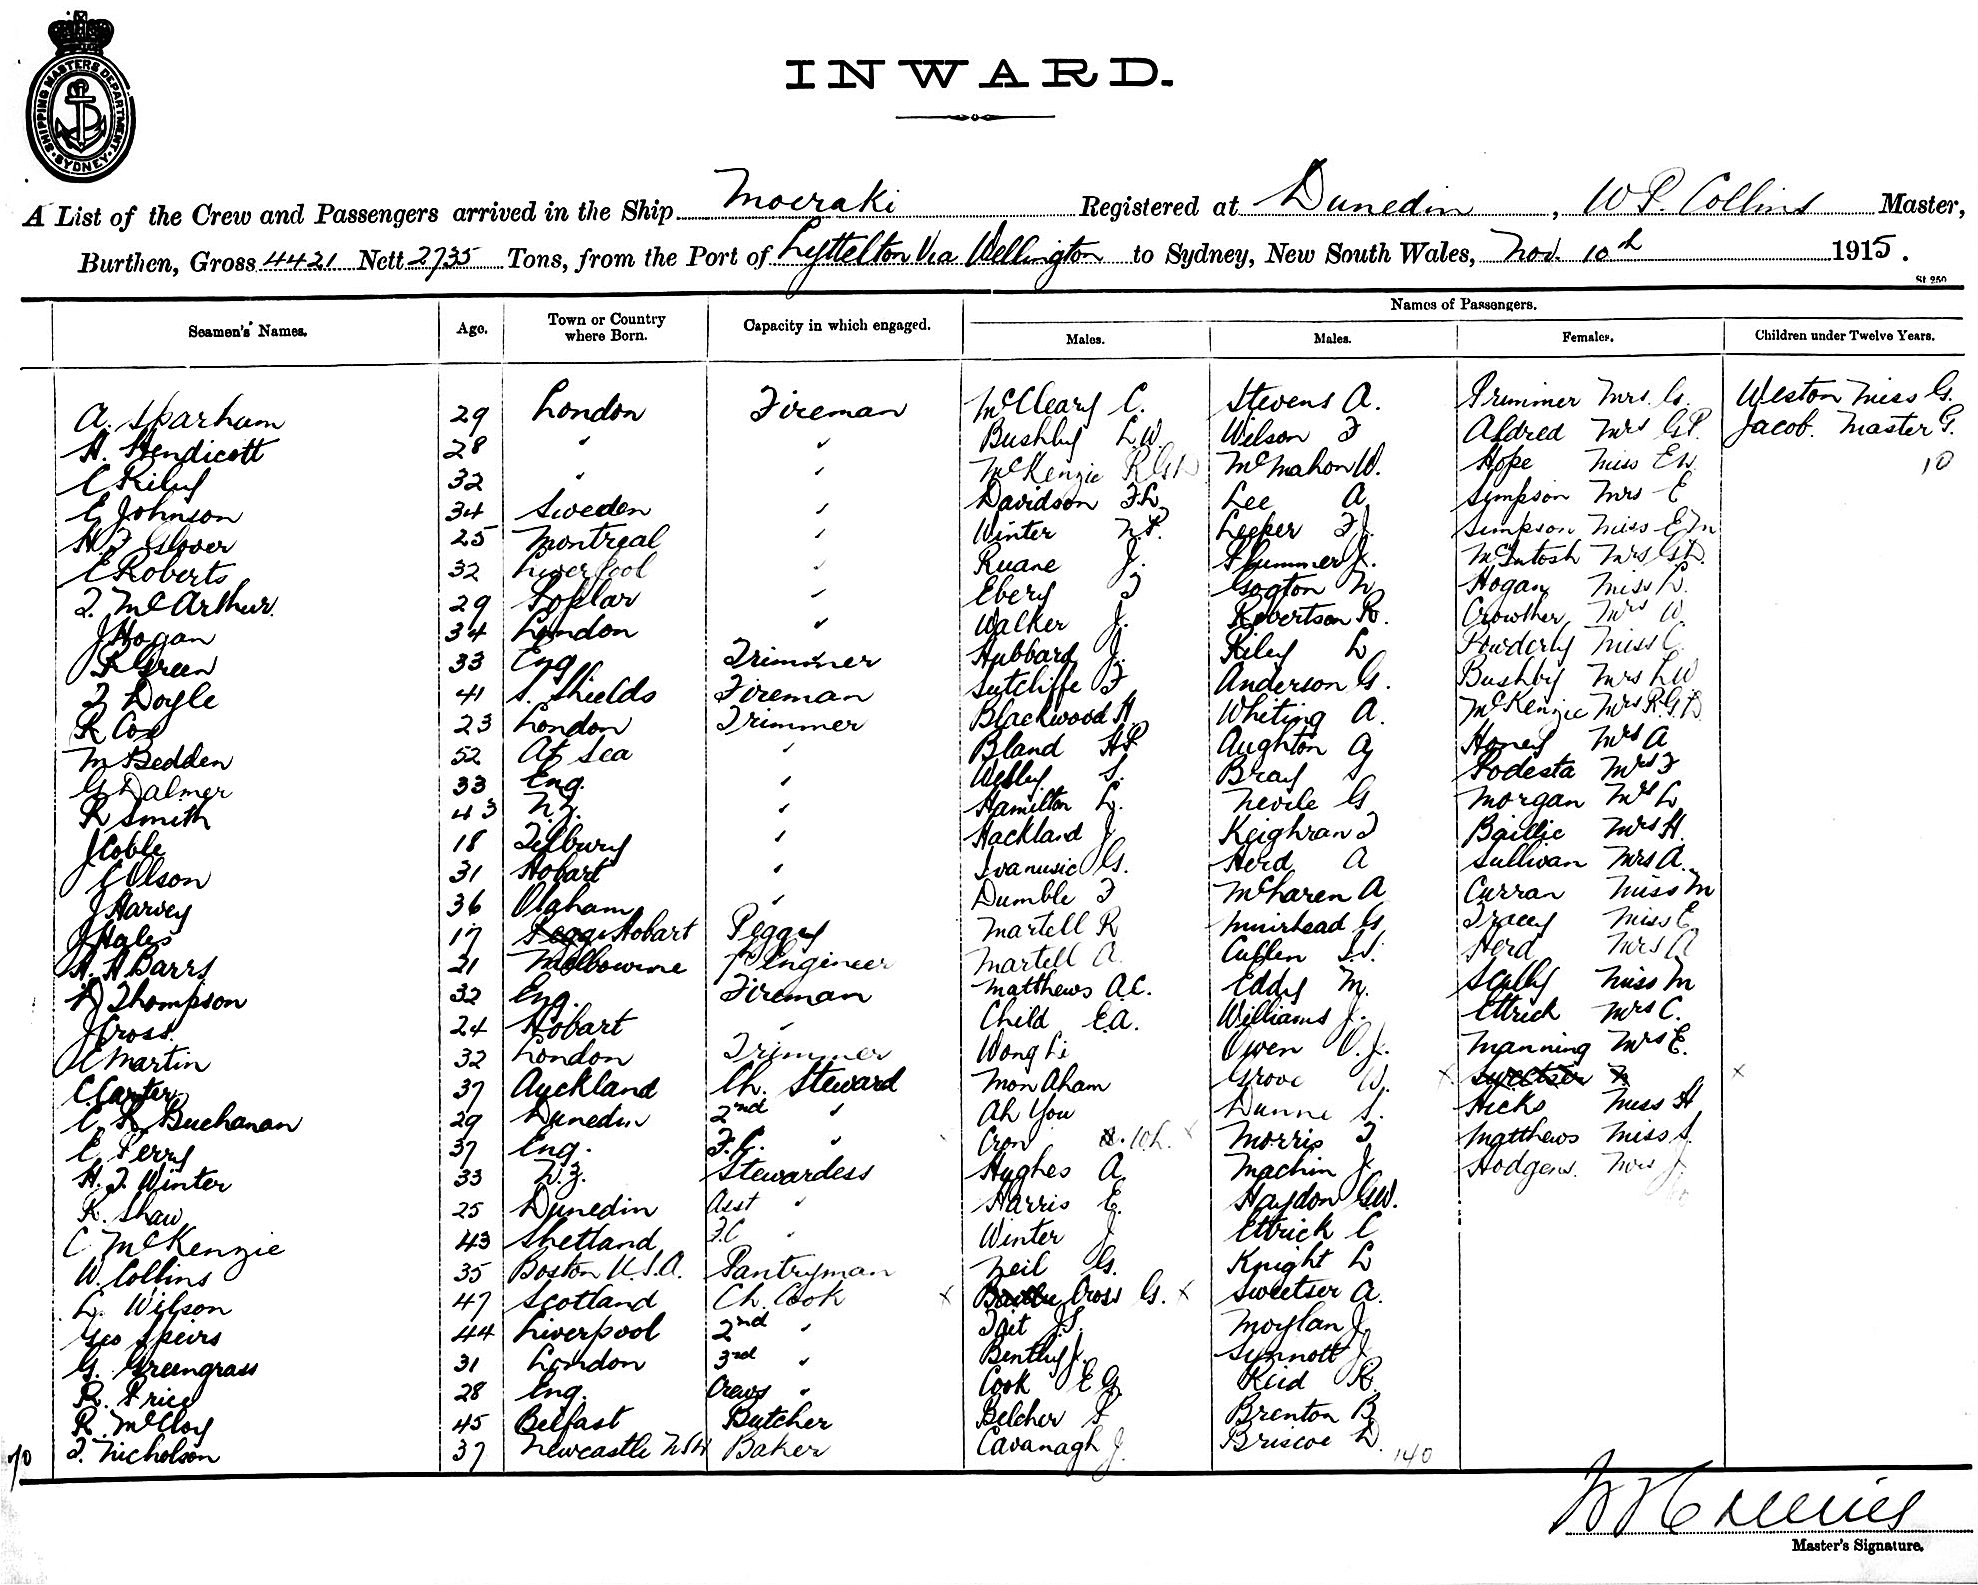 SHIPPING MASTERS DEPARTMENT SYDNEY
INWARD.
A List of the Crew and Passengers arrived in the Ship Moeraki Registered at Dunedin, W P. Collins Master,
Burthen, Gross 4421 Nett 2735 Tons, from the Port of Lyttelton Via Wellington to Sydney, New South Wales, Nov. 10th 1915.
St 250
Names of Passengers.
Seamen's Names. Age. Town or Country where Born. Capacity in which engaged. Males. Males. Females. Children under Twelve Years.
A. Sparham 29 London Fireman McCleary C. Stevens A. Trimmer Mrs G. Weston Miss G.
H. Hendicott 28 " " Bushby L.W. Wilson F Aldred Mrs G.P. Jacob. Master G.
C Riley 32 " " McKenzie R.G.D McMahon W. Hope Miss E.W. 10
E Johnson 34 Sweden " Davidson F.L. Lee A Simpson Mrs E
H.F Glover 25 Montreal " Winter N.P. Leeper F.J. Simpson Miss E.M
C Roberts 32 Liverpool " Ruane J. Plummer J. McIntosh Mrs G.D.
F. McArthur 29 Poplar " Ebery F Gogton N Hogan Miss L.
J Hogan 34 London " Walker J. Robertson R. Crowther Mrs W.
R Green 33 Eng Trimmer Hubbard J. Riley L Powderly Miss C.
F Doyle 41 S. Shields Fireman Sutcliffe F Anderson G. Bushby Mrs L.W
R Cox 23 London Trimmer Blackwood H. Whiting A. McKenzie Mrs R.G.D
M Bedden 52 At Sea " Bland H.P. Aughton A Honey Mrs A
G Dalmer 33 Eng. " Webley S. Bray S Podesta Mrs F
R Smith 43 N.Z. " Hamilton L. Nevile G Morgan Mrs L
J Coble 18 Tilbury " Hackland J Keighran F Baillie Mrs H.
C Olson 31 Hobart " Ivanusic G. Herd A Sullivan Mrs A.
J Harvey 36 Oldham " Dumble F McLaren A Curran Miss M
J Hales 17 Hobart Peggy Martell R Muirhead G Tracey Miss E.
A. H Barrs 21 Melbourne Engineer Martell A. Cullen S.S. Herd Mrs A
Thompson 32 Eng. Fireman Matthews A.C. Eddy M. Scully Miss M
J Cross 24 Hobart " Child E.A. Williams J. Ettrick Mrs C.
A Martin 32 London Trimmer Wong Li Owen O.J. Manning Mrs E.
C. Carter 37 Auckland Ch. Steward Mon Aham Grove W. x Sweetser x
C. R Buchanan 29 Dunedin 2nd " Ah You Dunne S. Hicks Miss H
E Perry 37 Eng. F.C. " Cron W.L. x Morris F Matthews Miss S.
H. F Winter 33 N.Z. Stewardess Hughes A. Machin J. Hodgens. Mrs J.
R. Shaw 25 Dunedin Asst " Harris E. Haydon G.W.
C McKenzie 43 Shetland F.C " Winter J Ettrick C
W. Collins 35 Boston U.S.A. Pantryman Neil G. Knight L
L. Wilson 47 Scotland Ch. Cook x Cross G. x Sweetser A.
Geo Speirs 44 Liverpool 2nd " Tait J.S. Moylan J.
G. Greengrass 31 London 3rd " Bentley J. Synnott J
R. Price 28 Eng. Crews " Cook E G. Reid R.
R. McCloy 45 Belfast Butcher Belcher P Brenton B
F. Nicholson 37 Newcastle NSW Baker Cavanagh J. Briscoe D. 140
Master's Signature.